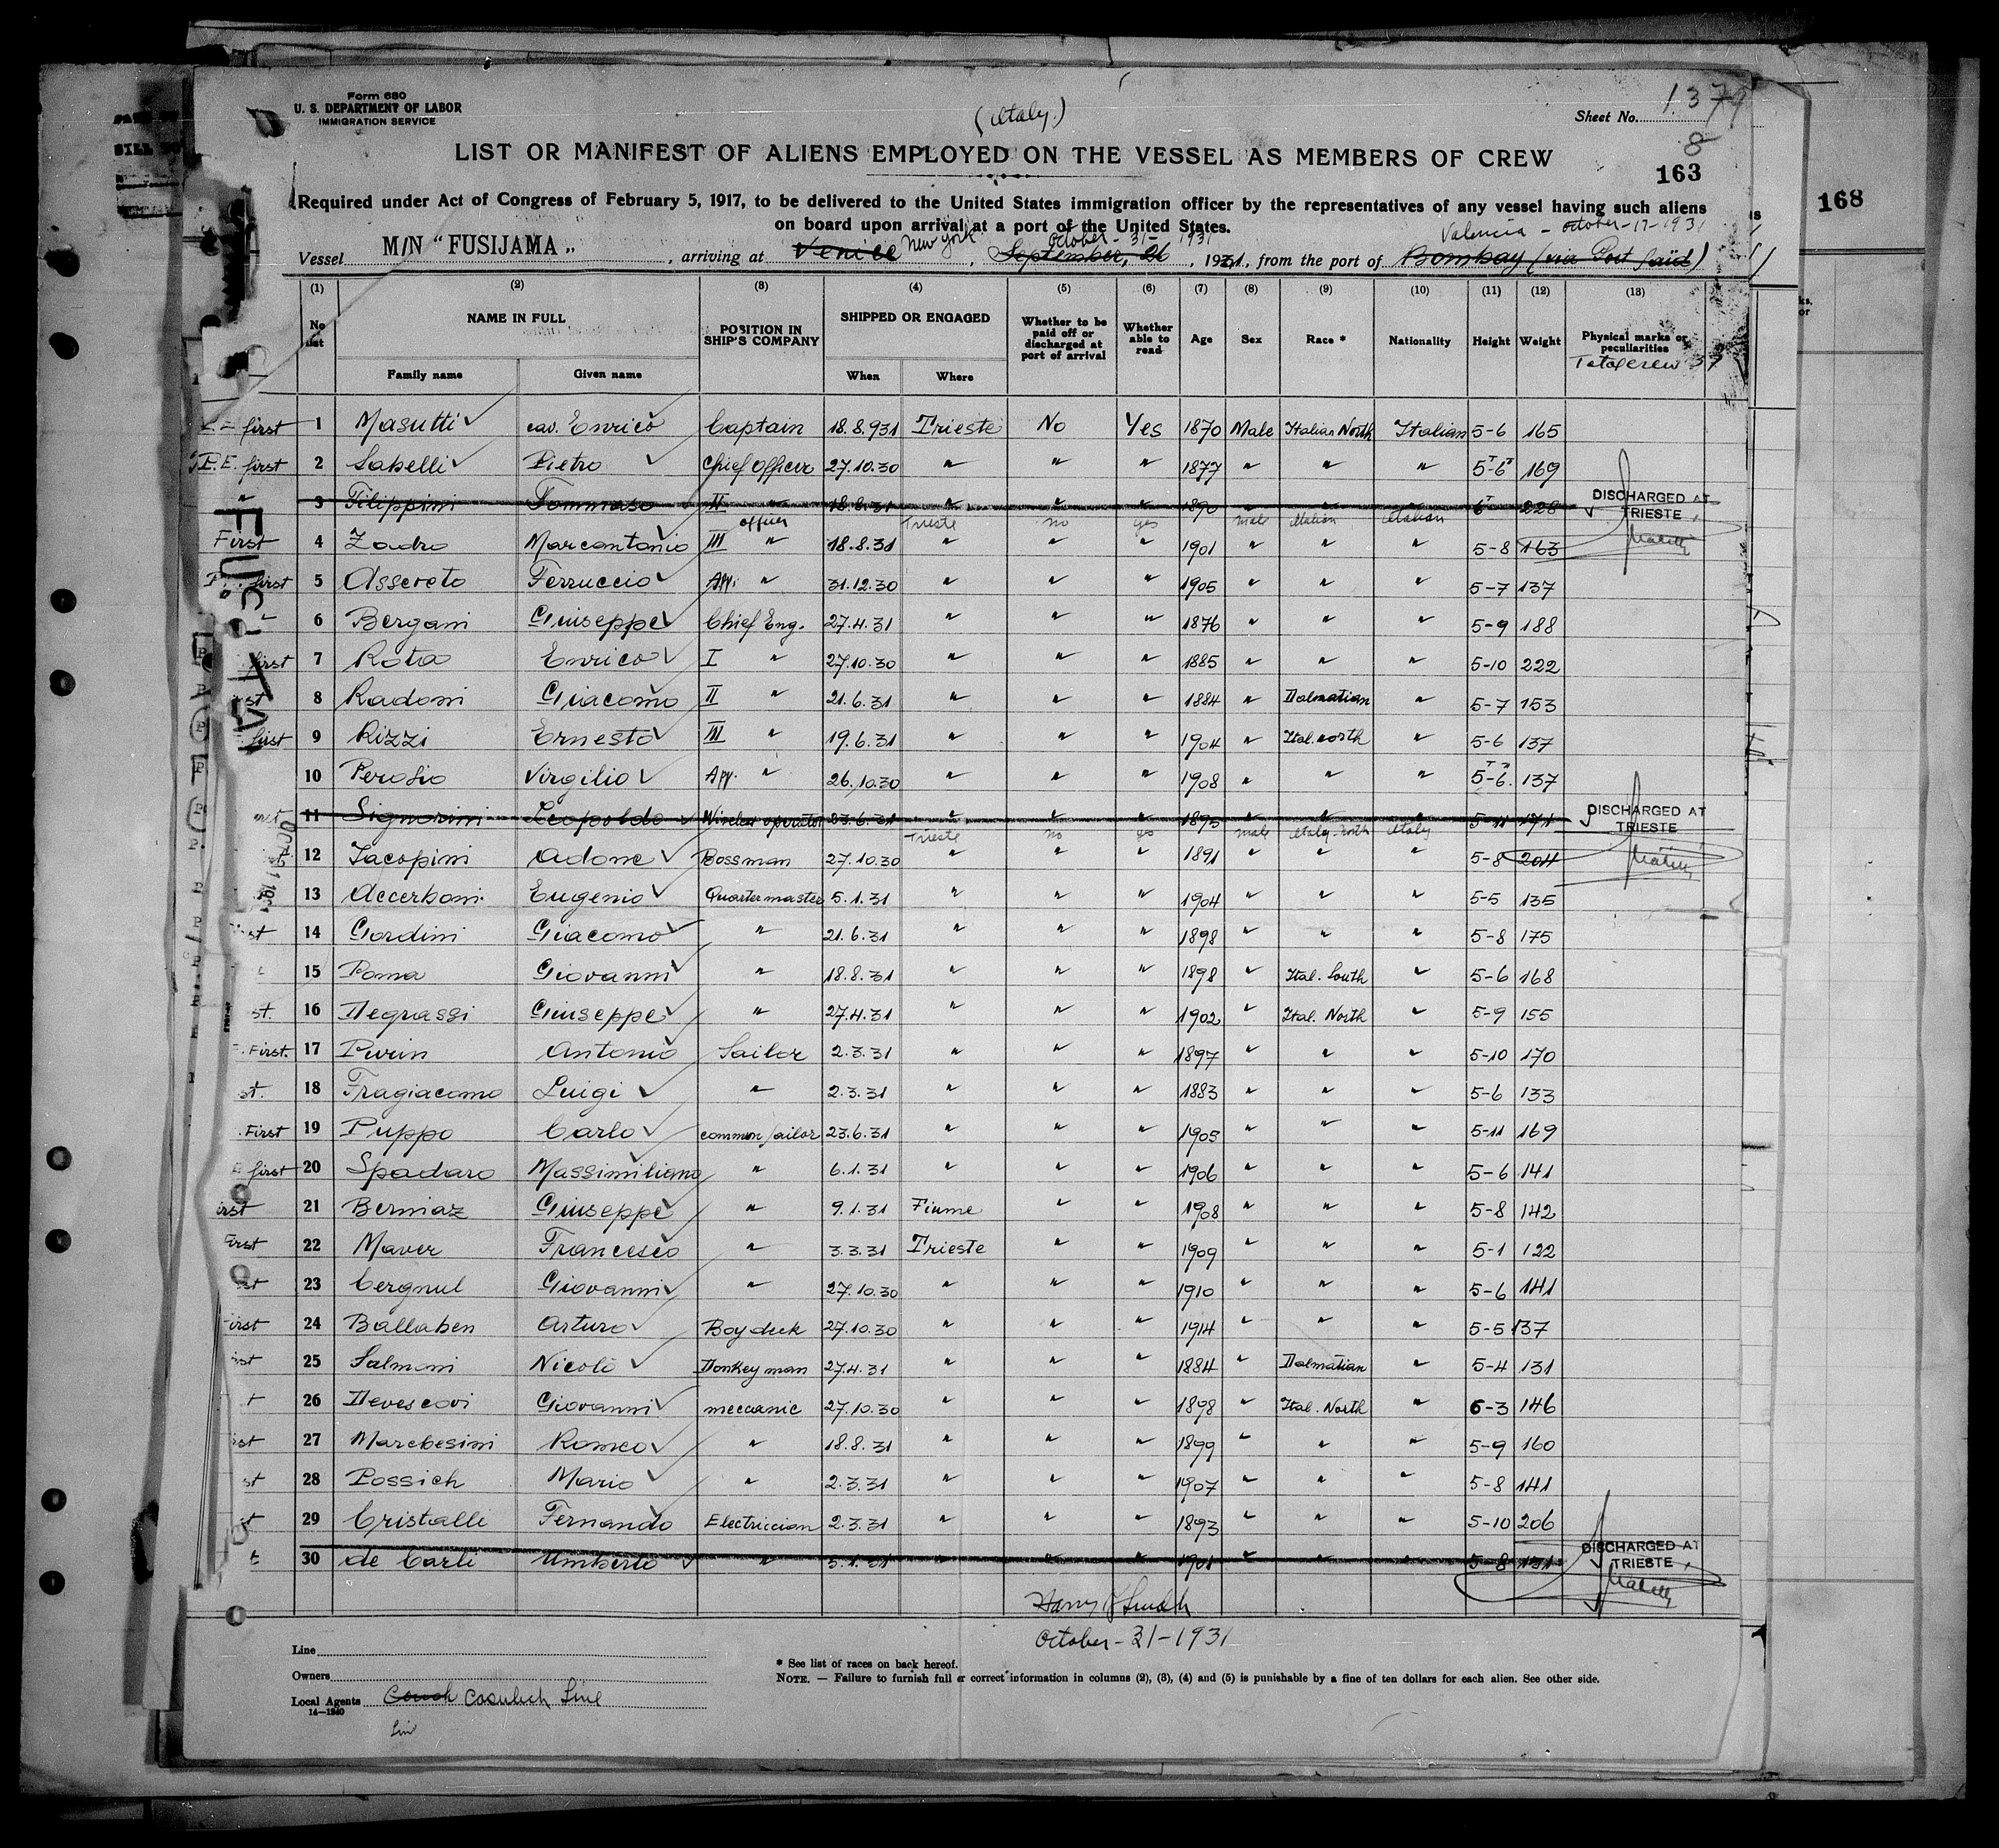 Form 680
U. S. DEPARTMENT OF LABOR
IMMIGRATION SERVICE
(Italy.)
Sheet No.
1379
8
LIST OR MANIFEST OF ALIENS EMPLOYED ON THE VESSEL AS MEMBERS OF CREW
163
168
Required under Act of Congress of February 5, 1917, to be delivered to the United States immigration officer by the representatives of any vessel having such aliens
on board upon arrival at a port of the United States.
New York October - 31 - 1931 Valencia - October - 17 - 1931
Vessel M/N "FUSIJAMA", arriving at Venice, September, 26, 1931, from the port of Bombay (via Port Said)
(1) (2) (3) (4) (5) (6) (7) (8) (9) (10) (11) (12) (13)
No list NAME IN FULL POSITION IN SHIP'S COMPANY SHIPPED OR ENGAGED Whether to be paid off or discharged at port of arrival Whether able to read Age Sex Race * Nationality Height Weight Physical marks or peculiarities
Family name Given name When Where
Total crew 37
first 1 Masutti cav. Enrico Captain 18.8.931 Trieste No Yes 1870 Male Italian North Italian 5-6 165
P.E. first 2 Sabelli Pietro Chief Officer 27.10.30 " " " 1877 " " " 5-6 169
" 3 Filippini Tommaso II " 18.8.31 " " " 1890 " " " 6 228 DISCHARGED AT TRIESTE
officer Trieste no yes male Italian Italian
First 4 Zadro Marcantonio III " 18.8.31 " " " 1901 " " " 5-8 163
first 5 Assereto Ferruccio App. " 31.12.30 " " " 1905 " " " 5-7 137
" 6 Bergani Giuseppe Chief Eng. 27.4.31 " " " 1876 " " " 5-9 188
first 7 Rota Enrico I " 27.10.30 " " " 1885 " " " 5-10 222
st 8 Radoni Giacomo II " 21.6.31 " " " 1884 " Dalmatian " 5-7 153
first 9 Rizzi Ernesto III " 19.6.31 " " " 1904 " Ital. north " 5-6 137
10 Perosio Virgilio App. " 26.10.30 " " " 1908 " " " 5-6. 137
11 Signorini Leopoldo Wireless operator 23.6.31 " " " 1895 " " " 5-11 171 DISCHARGED AT TRIESTE
Trieste no yes male Italy. North Italy
12 Jacopini Adone Bossman 27.10.30 " " " 1891 " " " 5-8 204
13 Accerboni Eugenio Quartermaster 5.1.31 " " " 1904 " " " 5-5 135
st 14 Gordini Giacomo " 21.6.31 " " " 1898 " " " 5-8 175
15 Poma Giovanni " 18.8.31 " " " 1898 " Ital. South " 5-6 168
st. 16 Degrassi Giuseppe " 27.4.31 " " " 1902 " Ital. North " 5-9 155
First. 17 Purin Antonio Sailor 2.3.31 " " " 1897 " " " 5-10 170
st. 18 Fragiacomo Luigi " 2.3.31 " " " 1883 " " " 5-6 133
First 19 Puppo Carlo common sailor 23.6.31 " " " 1905 " " " 5-11 169
E first 20 Spadaro Massimiliano " 6.1.31 " " " 1906 " " " 5-6 141
irst 21 Berniaz Giuseppe " 9.1.31 Fiume " " 1908 " " " 5-8 142
First 22 Maver Francesco " 3.3.31 Trieste " " 1909 " " " 5-1 122
st 23 Cergnul Giovanni " 27.10.30 " " " 1910 " " " 5-6 141
irst 24 Ballaben Arturo Boy deck 27.10.30 " " " 1914 " " " 5-5 137
ist 25 Salmoni Nicolò Donkeyman 27.4.31 " " " 1884 " Dalmatian " 5-4 131
t 26 Devescovi Giovanni meccanic 27.10.30 " " " 1898 " Ital. North " 6-3 146
ist 27 Marchesini Romeo " 18.8.31 " " " 1899 " " " 5-9 160
st 28 Possich Mario " 2.3.31 " " " 1907 " " " 5-8 141
st 29 Cristalli Fernando Electriccian 2.3.31 " " " 1893 " " " 5-10 206
t 30 de Carli Umberto " 5.1.31 " " " 1901 " " " 5-8 131 DISCHARGED AT TRIESTE
Harry
October - 31 - 1931
Line
* See list of races on back hereof.
Owners
NOTE. — Failure to furnish full or correct information in columns (2), (3), (4) and (5) is punishable by a fine of ten dollars for each alien. See other side.
Local Agents Cosulich Line
14—1240